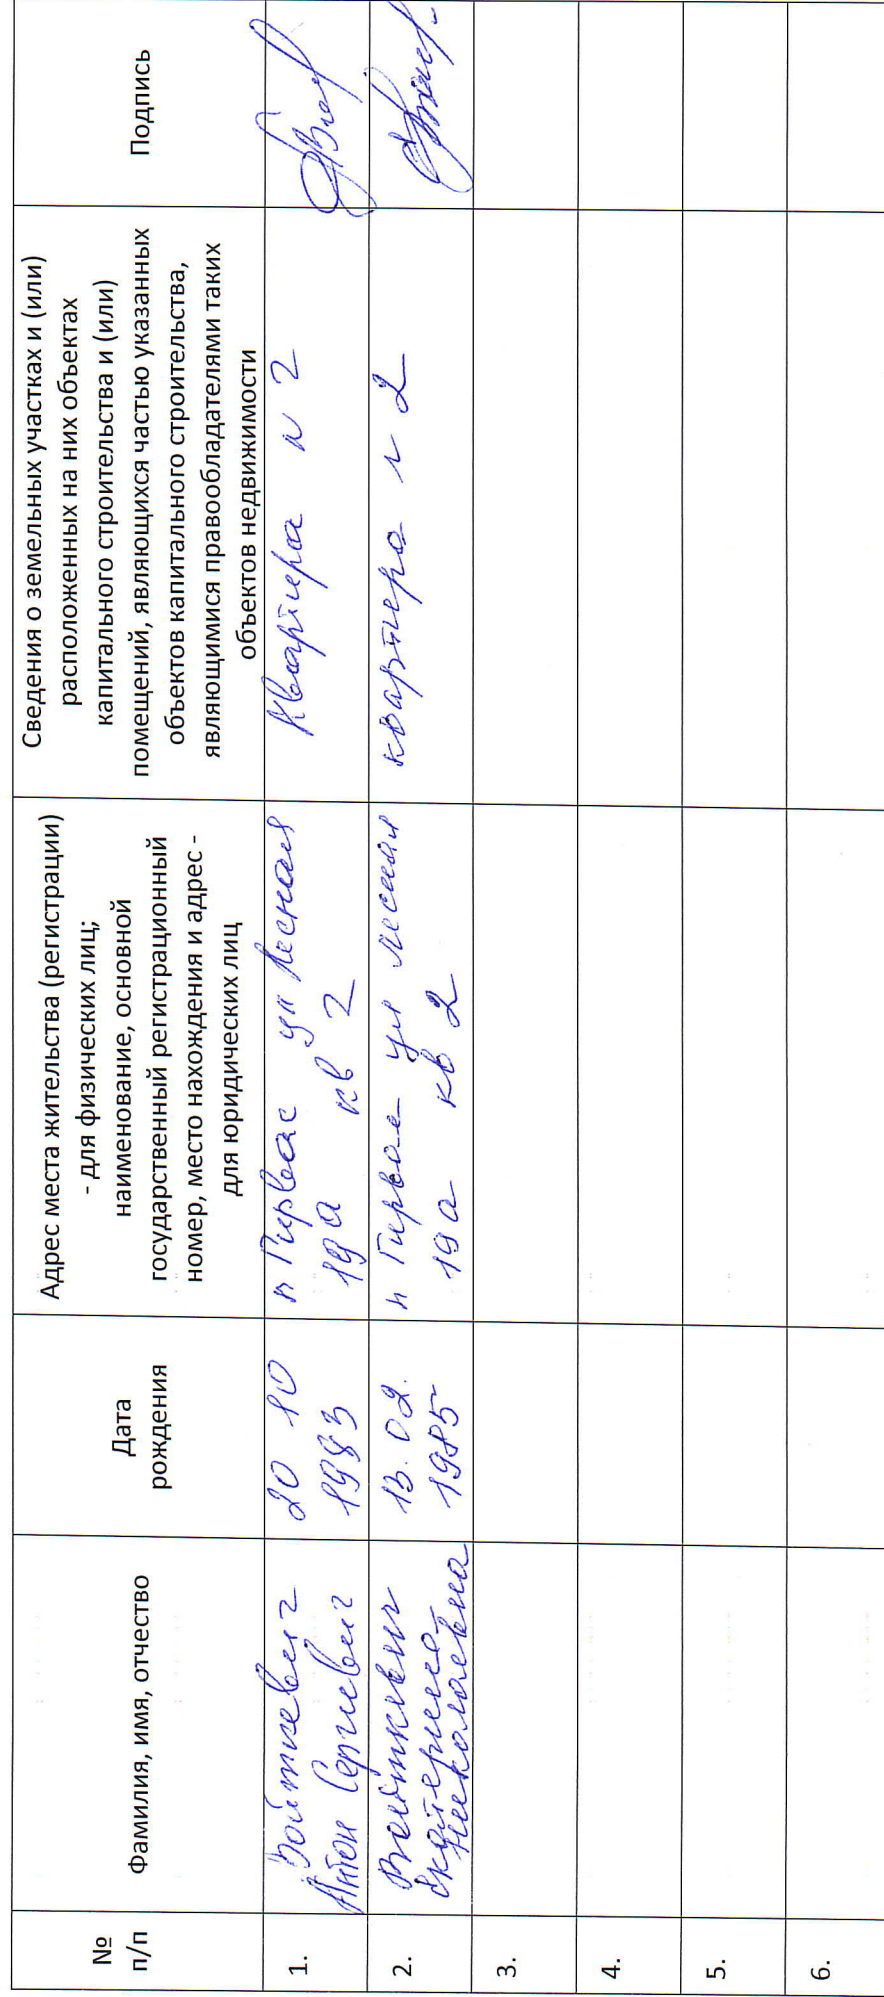 №
п/п
Фамилия, имя, отчество
Дата
рождения
Адрес места жительства (регистрации)
- для физических лиц;
наименование, основной
государственный регистрационный
номер, место нахождения и адрес -
для юридических лиц
Сведения о земельных участках и (или)
расположенных на них объектах
капитального строительства и (или)
помещений, являющихся частью указанных
объектов капитального строительства,
являющимися правообладателями таких
объектов недвижимости
Подпись
1.
Войткевич
Антон Сергеевич
20 10
1983
п Первое ул Лесная
19а кв 2
Квартира № 2
2.
Войткевич
Екатерина
Николаевна
13.02.
1985
п Первое ул Лесная
19а кв 2
квартира № 2
3.
4.
5.
6.